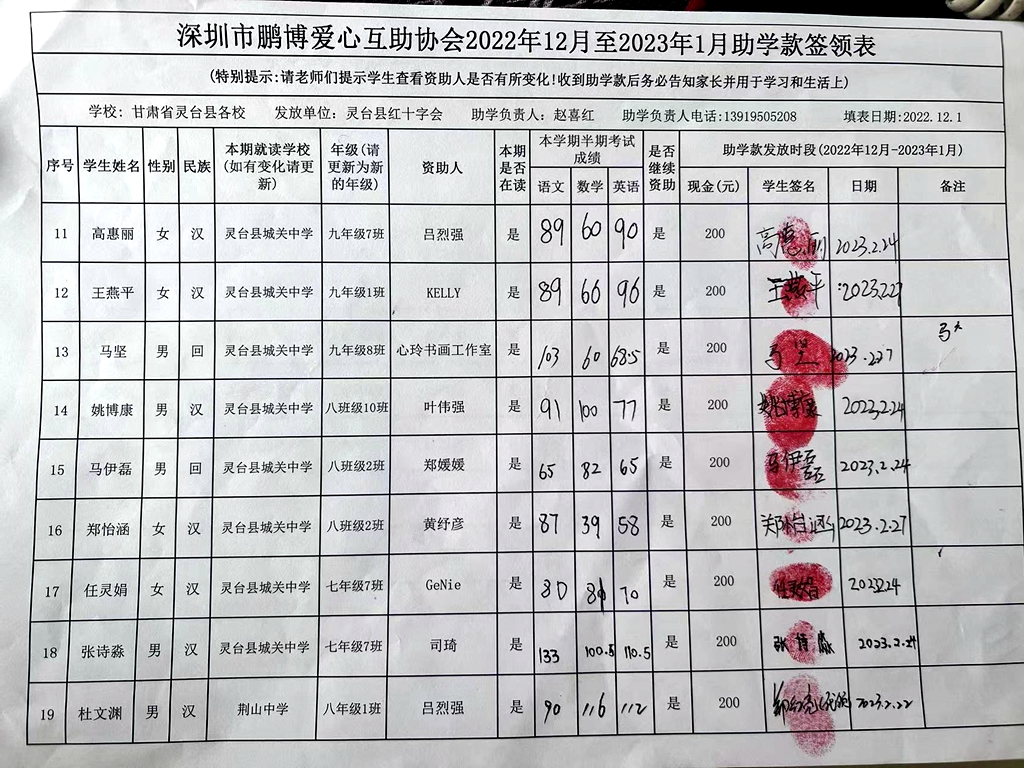 深圳市鹏博爱心互助协会2022年12月至2023年1月助学款签领表
(特别提示:请老师们提示学生查看资助人是否有所变化!收到助学款后务必告知家长并用于学习和生活上)
学校: 甘肃省灵台县各校 发放单位: 灵台县红十字会 助学负责人: 赵喜红 助学负责人电话:13919505208 填表日期:2022.12.1
序号 学生姓名 性别 民族 本期就读学校(如有变化请更新) 年级(请更新为新的年级) 资助人 本期是否在读 本学期半期考试成绩 是否继续资助 助学款发放时段(2022年12月-2023年1月)
语文 数学 英语 现金(元) 学生签名 日期 备注
11 高惠丽 女 汉 灵台县城关中学 九年级7班 吕烈强 是 89 60 90 是 200 高惠丽 2023.2.24
12 王燕平 女 汉 灵台县城关中学 九年级1班 KELLY 是 89 66 96 是 200 王燕平 2023.2.27
13 马坚 男 回 灵台县城关中学 九年级8班 心玲书画工作室 是 103 60 68.5 是 200 马坚 2023.2.27
14 姚博康 男 汉 灵台县城关中学 八班级10班 叶伟强 是 91 100 77 是 200 姚博康 2023.2.24
15 马伊磊 男 回 灵台县城关中学 八班级2班 郑媛媛 是 65 82 65 是 200 马伊磊 2023.2.24
16 郑怡涵 女 汉 灵台县城关中学 八班级2班 黄纾彦 是 87 39 58 是 200 郑怡涵 2023.2.27
17 任灵娟 女 汉 灵台县城关中学 七年级7班 GeNie 是 80 70 是 200 2023.2.24
18 张诗淼 男 汉 灵台县城关中学 七年级7班 司琦 是 133 100.5 110.5 是 200 张诗淼 2023.2.24
19 杜文渊 男 汉 荆山中学 八年级1班 吕烈强 是 90 116 112 是 200 2023.2.22